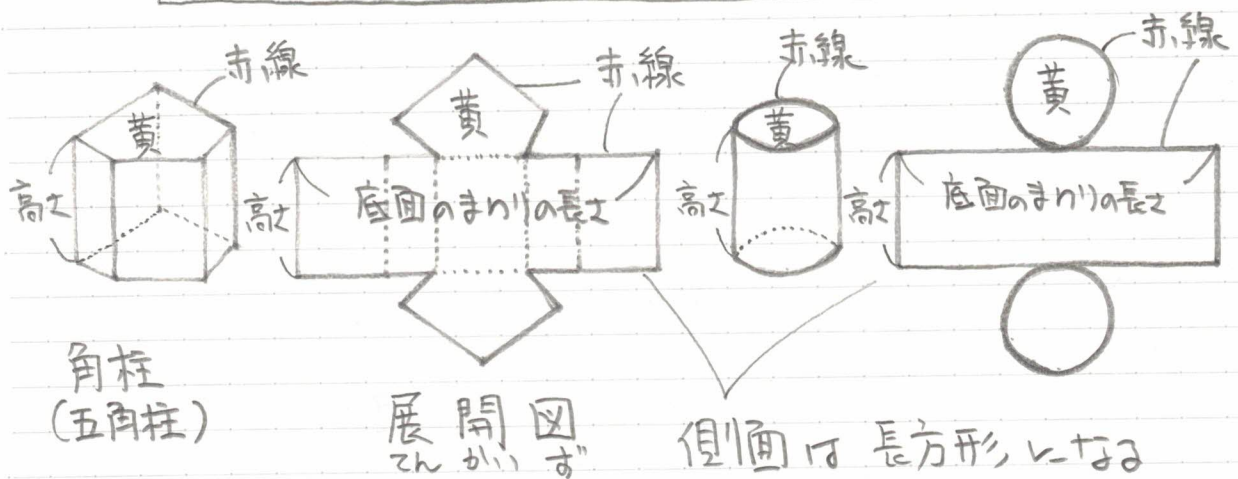 赤線
黄
高さ
赤線
黄
高さ
底面のまわりの長さ
赤線
黄
高さ
赤線
黄
高さ
底面のまわりの長さ
角柱
(五角柱)
展開図
てんかいず
側面は長方形になる